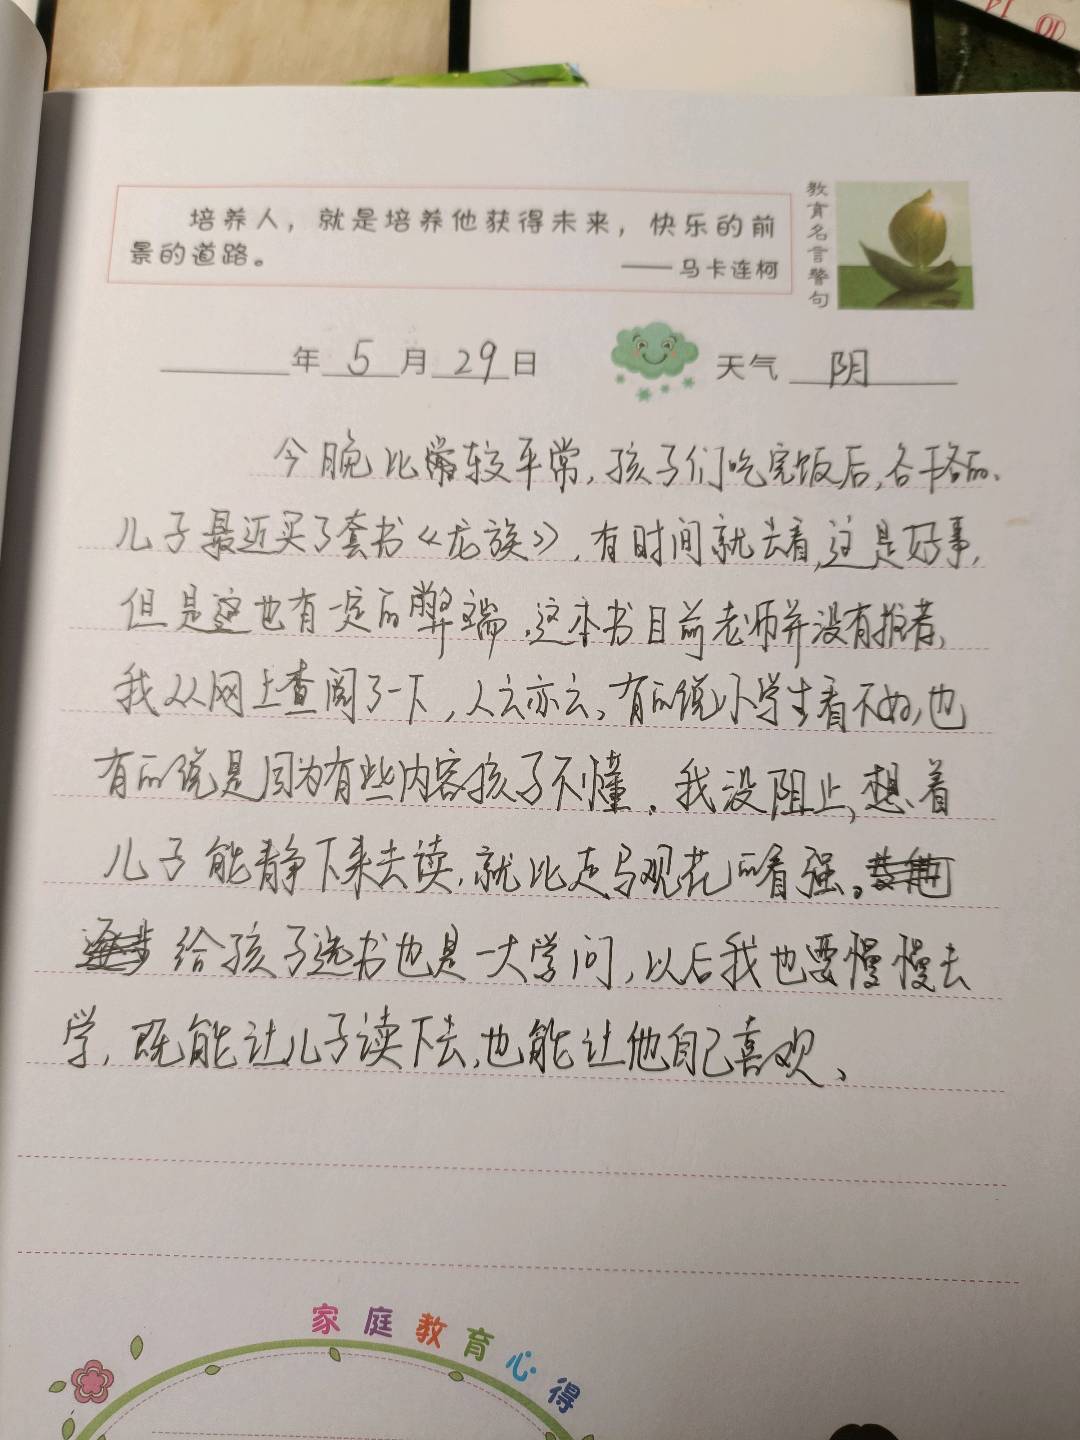 培养人，就是培养他获得未来，快乐的前
景的道路。
——马卡连柯
教育名言警句
年 5 月 29 日
天气 阴
今晚比较平常，孩子们吃完饭后，各干各的、
儿子最近买了套书《龙族》，有时间就去看，这是好事，
但是这也有一定的弊端，这本书目前老师并没有推荐，
我从网上查阅了一下，人云亦云、有的说小学生看不好，也
有的说是因为有些内容孩子不懂，我没阻止，想着
儿子能静下来去读，就比走马观花的看强。
给孩子选书也是一大学问，以后我也要慢慢去
学，既能让儿子读下去，也能让他自己喜欢、
家庭教育心得